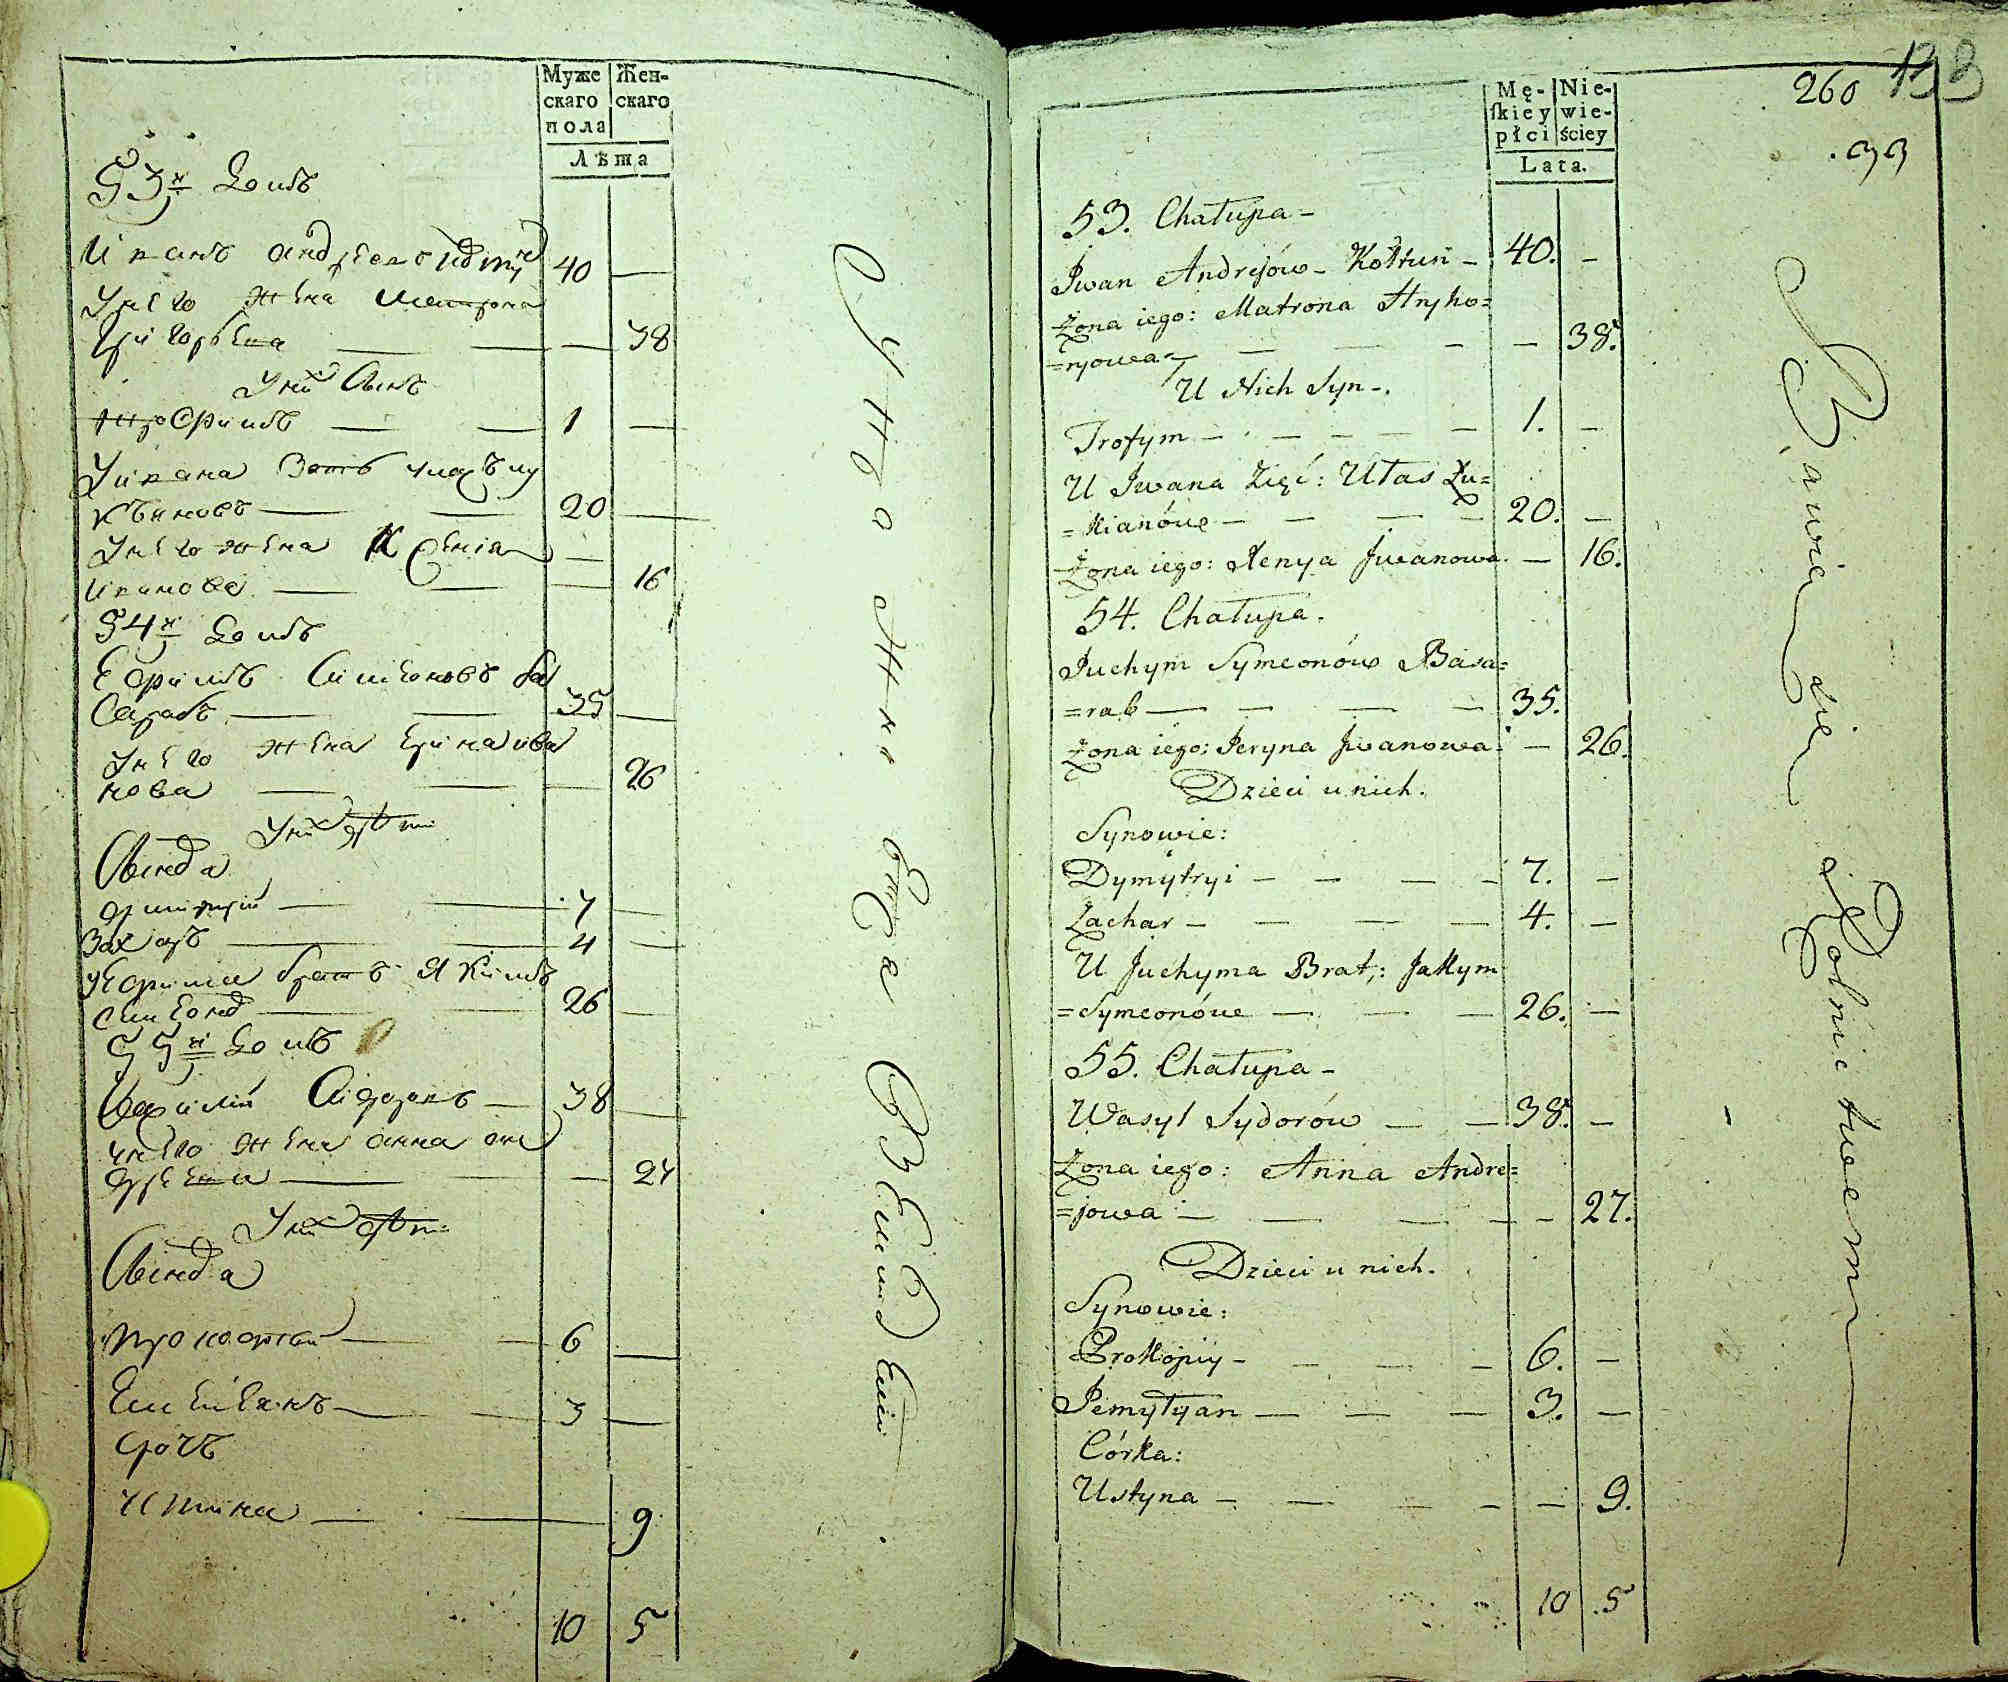 Муже Жен-
скаго скаго
пола
Лѣта
53й Домъ
Иванъ Андреевъ 40 —
У него жена Матрона
Григорьева — — — 38
У них Сынъ
Трофимъ — — 1 —
У Ивана Зять Улас Лу
кьяновъ — — 20 —
У него жена Ксения —
Иванова — — — 16
54й Домъ
Ефимъ Симеоновъ Ба
сарабъ — — 35 —
У него жена Ирина Ива
нова — — — 26
У них дети
Сынова
Димитрий — — 7 —
Захаръ — — 4 —
У Ефима братъ Якимъ
Симеонов — — 26 —
55й Домъ
Василий Сидоровъ — 38 —
У него жена Анна Ан
дреева — — 27
У них дети
Сынова
Прокофий — — 6 —
Емелианъ — — 3 —
Дочь
Устина — — 9
10 5
Mę- Nie-
ſkiey wie-
płci ściey
Lata.
260 133
53. Chałupa –
Jwan Andrijów – Kołtun – 40. –
Żona iego: Matrona Hryho=
=ryowa – — — – – 38.
U Nich Syn –.
Trofym – – – – – 1. –
U Jwana Zięć: Ułas Łu=
=kianów – – — – 20. –
Żona iego: Xenya Jwanowa. – 16.
54. Chałupa.
Juchym Symeonów Basa=
=rab — – — – 35.
Żona iego: Jeryna Jwanowa. – 26.
Dzieci u nich.
Synowie:
Dymytryi – – — – 7. –
Zachar – – — – 4. –
U Juchyma Brat,: Jakym
=Symeonów — – – 26. –
55. Chałupa –
Wasyl Sydorów — – 38. –
Żona iego: Anna Andre=
=jowa – — — – – 27.
Dzieci u nich.
Synowie:
Prokopiy – – — – 6. –
Jemyłyan — – — 3. —
Córka:
Ustyna – — – – – 9.
10 5
Bawią się Rolnictwem